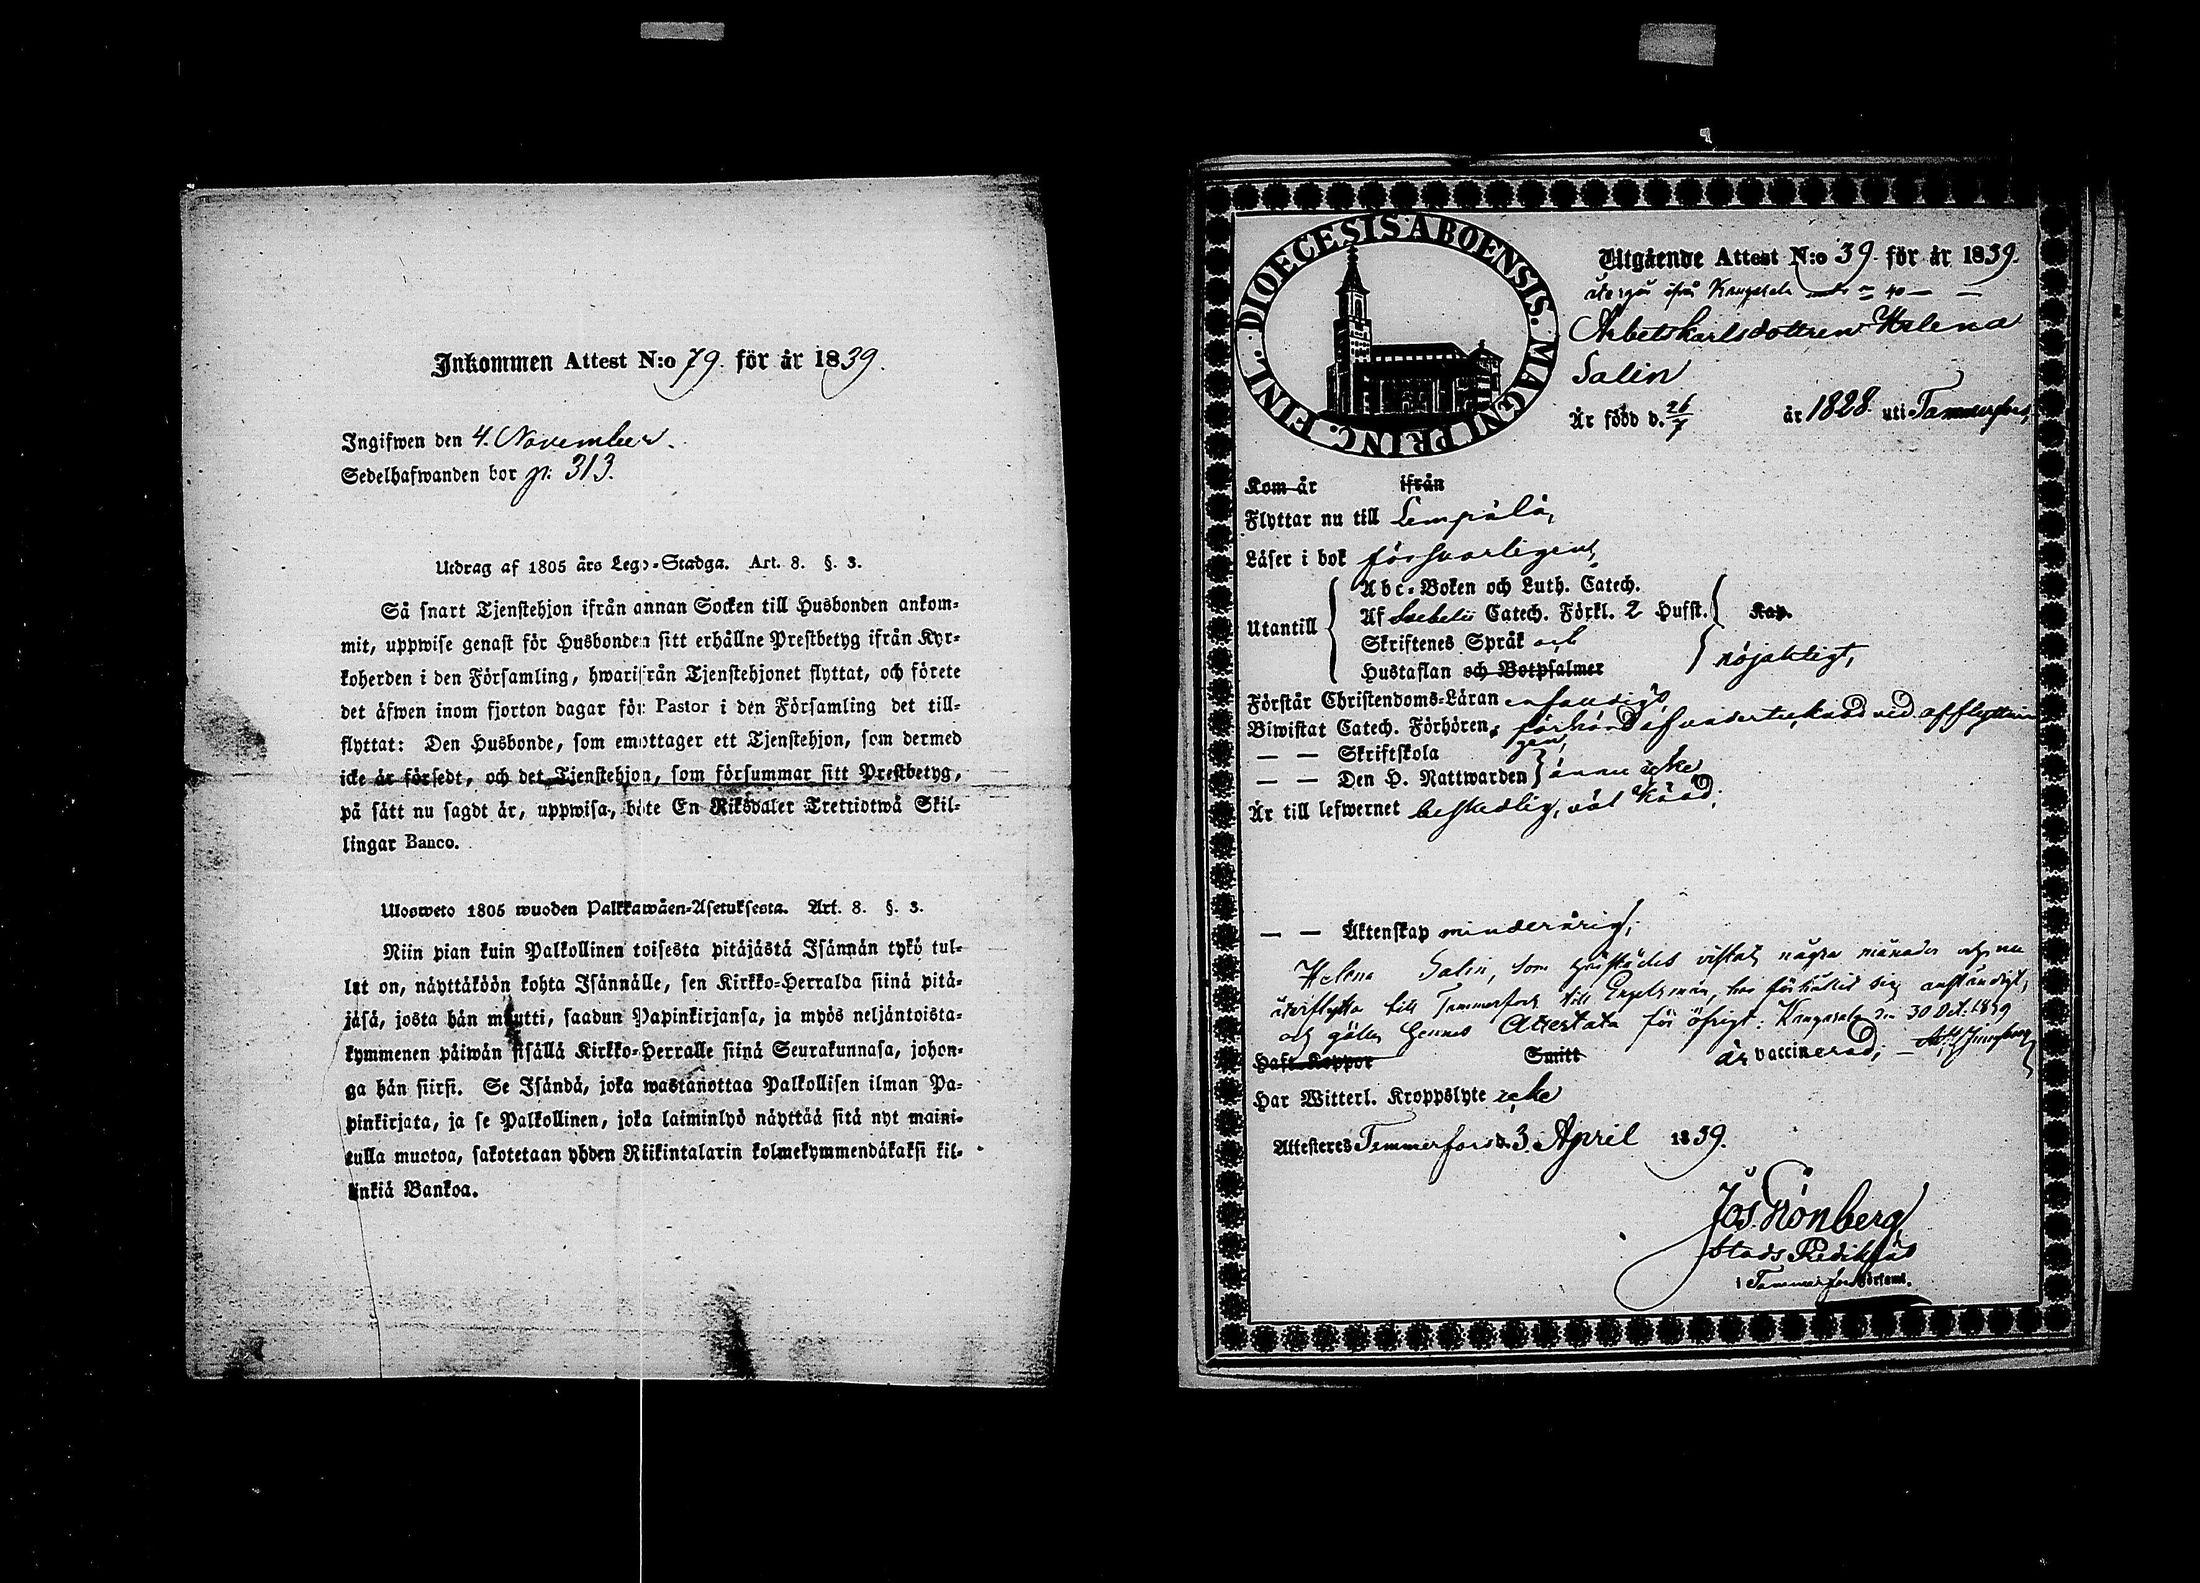 Inkommen Attest N:o 79. för år 1839.
Ingifwen den 4. November.
Sedelhafwanden bor p: 313.
Utdrag af 1805 års Lego-Stadga. Art. 8. §. 3.
Så snart Tjenstehjon ifrån annan Socken till Husbonden ankom-
mit, uppwise genast för Husbonden sitt erhållne Prestbetyg ifrån Kyr-
koherden i den Församling, hwarifrån Tjenstehjonet flyttat, och förete
det äfwen inom fjorton dagar för Pastor i den Församling det till-
flyttat: Den Husbonde, som emottager ett Tjenstehjon, som dermed
icke är försedt, och det Tjenstehjon, som försummar sitt Prestbetyg,
på sätt nu sagdt är, uppwisa, böte En Riksdaler Trettiotwå Skil-
lingar Banco.
Ulosweto 1805 wuoden Palkkawäen-Asetuksesta. Art. 8. §. 3.
Niin pian kuin Palkollinen toisesta pitäjästä Isännän tykö tul-
lut on, näyttäköön kohta Isännälle, sen Kirkko-Herralda siinä pitä-
jäsä, josta hän muutti, saadun Papinkirjansa, ja myös neljäntoista-
kymmenen päiwän sisällä Kirkko-Herralle siinä Seurakunnasa, johon-
ga hän siirsi. Se Isändä, joka wastanottaa Palkollisen ilman Pa-
pinkirjata, ja se Palkollinen, joka laiminlyö näyttää sitä nyt maini-
tulla muotoa, sakotetaan yhden Riikintalarin kolmekymmendäkaksi kil-
linkiä Bankoa.
DIOECESIS ABOENSIS. MAGNI PRINC. FINL.
Utgående Attest N:o 39. för år 1839.
återgår ifrån Kangasala 40
Arbetskarlsdottren Helena
Salin
Är född d. 26/7 år 1828. uti Tammerfors,
Kom år ifrån
Flyttar nu till Lempälä,
Läser i bok försvarligen,
Utantill
Abc-Boken och Luth. Catech.
Af Svebelii Catech. Förkl. 2 Hufst. Kap.
Skriftenes Språk och
Hustaflan och Botpsalmer nöjaktigt,
Förstår Christendoms-Läran enfaldigt,
Biwistat Catech. Förhören, förhörd af undertecknad vid afflyttnin
gen,
— — Skriftskola
— — Den H. Nattwarden ännu icke
Är till lefwernet beskedlig, väl känd,
— — Äktenskap minderårig;
Helena Salin, som härstädes vistats några månader och nu
återflytta till Tammerfors till Engelsman, har förhållit sig anständigt,
och gäller hennes Attestata för öfrigt: Kangasala den 30 Oct. 1839
Haft Koppor Smitt är vaccinerad; —
Har Witterl. Kroppslyte icke
Attesteres Tammerfors d. 3. April 1839.
Jos. Grönberg
Stads Predikant
i Tammerfors Församl.